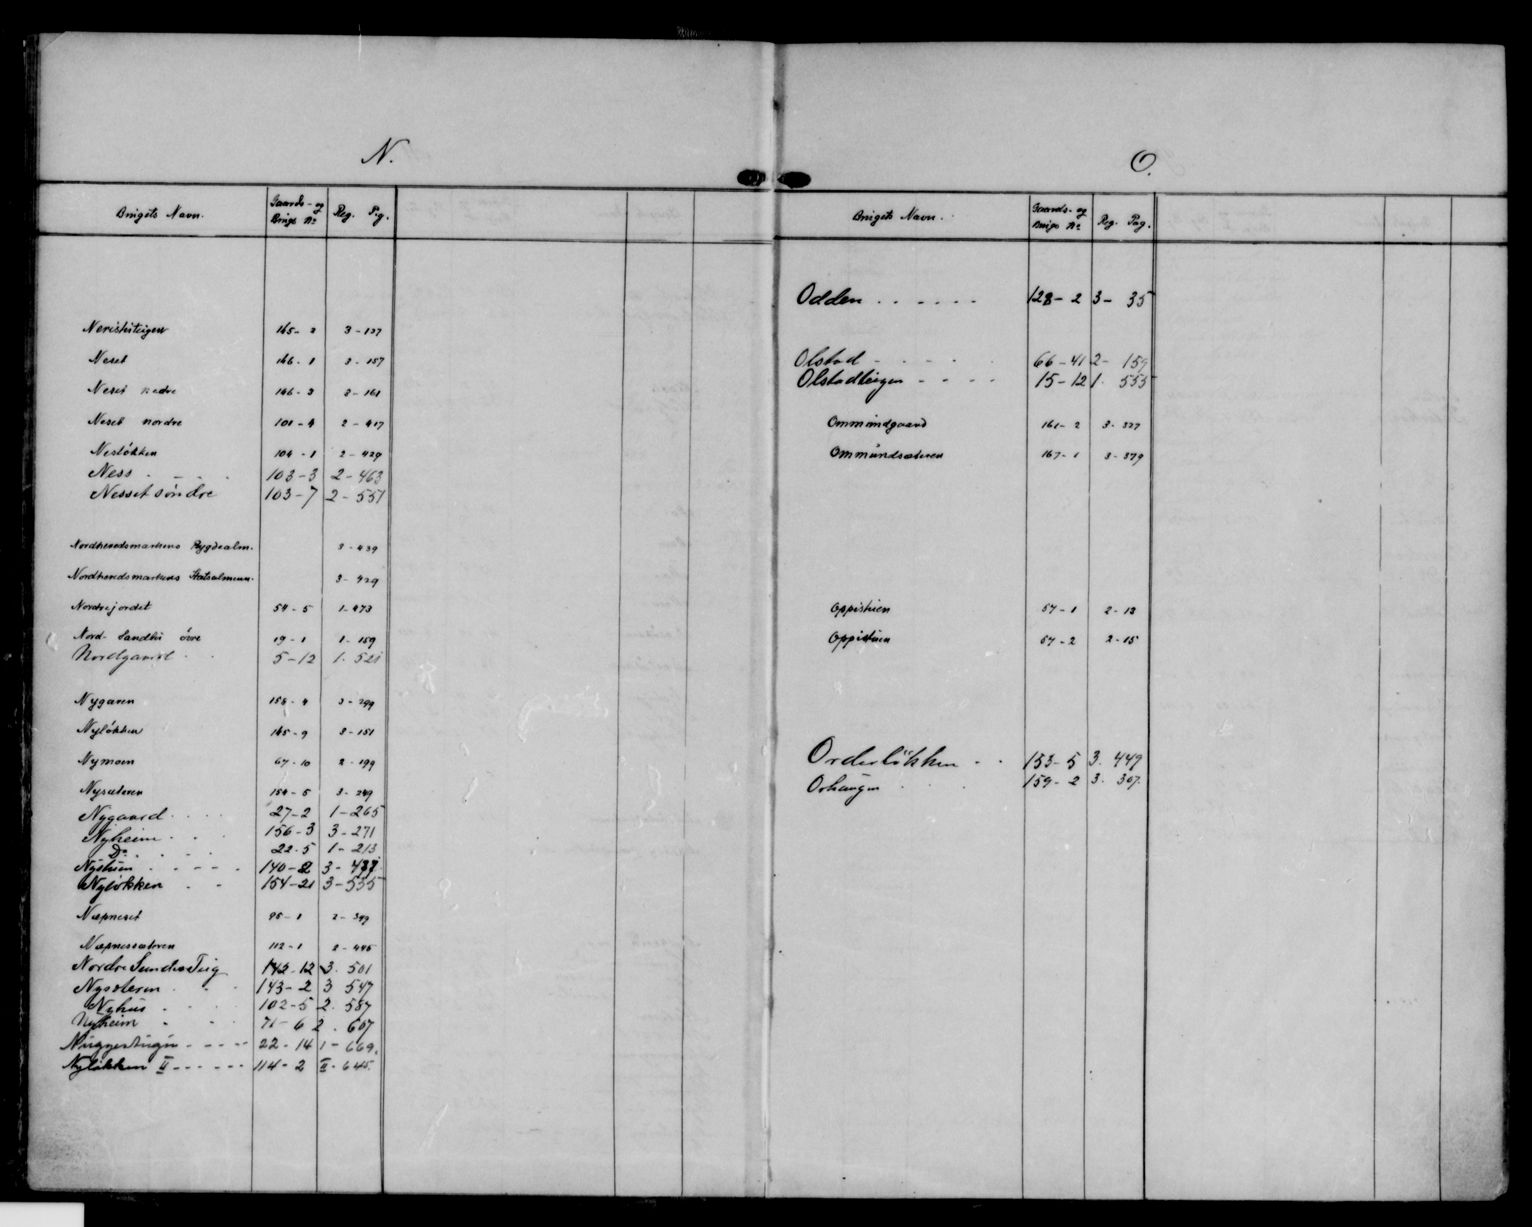 N.
Brugets Navn. Gaards- og Brugs № Reg. Pag.
165 - 2 3 - 127
Neset 166 - 1 3 - 157
Neset nedre 166 - 3 3 - 161
Neset nordre 101 - 4 2 - 417
Nesløkken 104 - 1 2 - 429
Ness - - - . 103 - 3 2 - 463
Nesset søndre 103 - 7 2 - 557
Nordherredsmarkens Bygdealm. 3 - 439
Nordheredsmarkens Statsalmenn. 3 - 429
Nordrejordet 54 - 5 1 - 473
Nord-Sandbu øvre 19 - 1 1 - 159
Nordgaard . . 5 - 12 1. 521
Nygaren 158 - 4 3 - 299
Nyløkken 165 - 9 3 - 151
Nymoen 67 - 10 2 - 199
Nysæteren 154 - 5 3 - 249
Nygaard . . . . 27 - 2 1 - 265
Nyheim . . . 156 - 3 3 - 271
Do . . . . 22 - 5 1 - 213
Nystuen . - - - - 140 - 2 3 - 437
Nyløkken . - 154 - 21 3 - 535
Næpneset 95 - 1 2 - 349
Næpnessæteren 112 - 1 2 - 445
Nordre Sundes Teig 142 - 12 3. 501
Nysæteren . . . 143 - 2 3 547
Nyhus . . . 102 - 5 2. 587
Nyheim . . . 71 - 6 2. 607
22 - 14 1 - 669.
Nyløkken II - - - - - - 114 - 2 II - 645
O.
Brugets Navn. Gaards- og Brugs № Reg. Pag.
Odden . . - - - - 128 - 2 3 - 35
Olstad - - - - 66 - 41 2 - 159
Olstadteigen - - - - 15 - 12 1. 555
Ommundgaard 161 - 2 3 - 327
Ommundsæteren 167 - 1 3 - 379
Oppistuen 57 - 1 2 - 13
Oppistuen 57 - 2 2 - 15
Orderløkken - - 153 - 5 3. 449
Orhaugen . . . 159 - 2 3. 307.